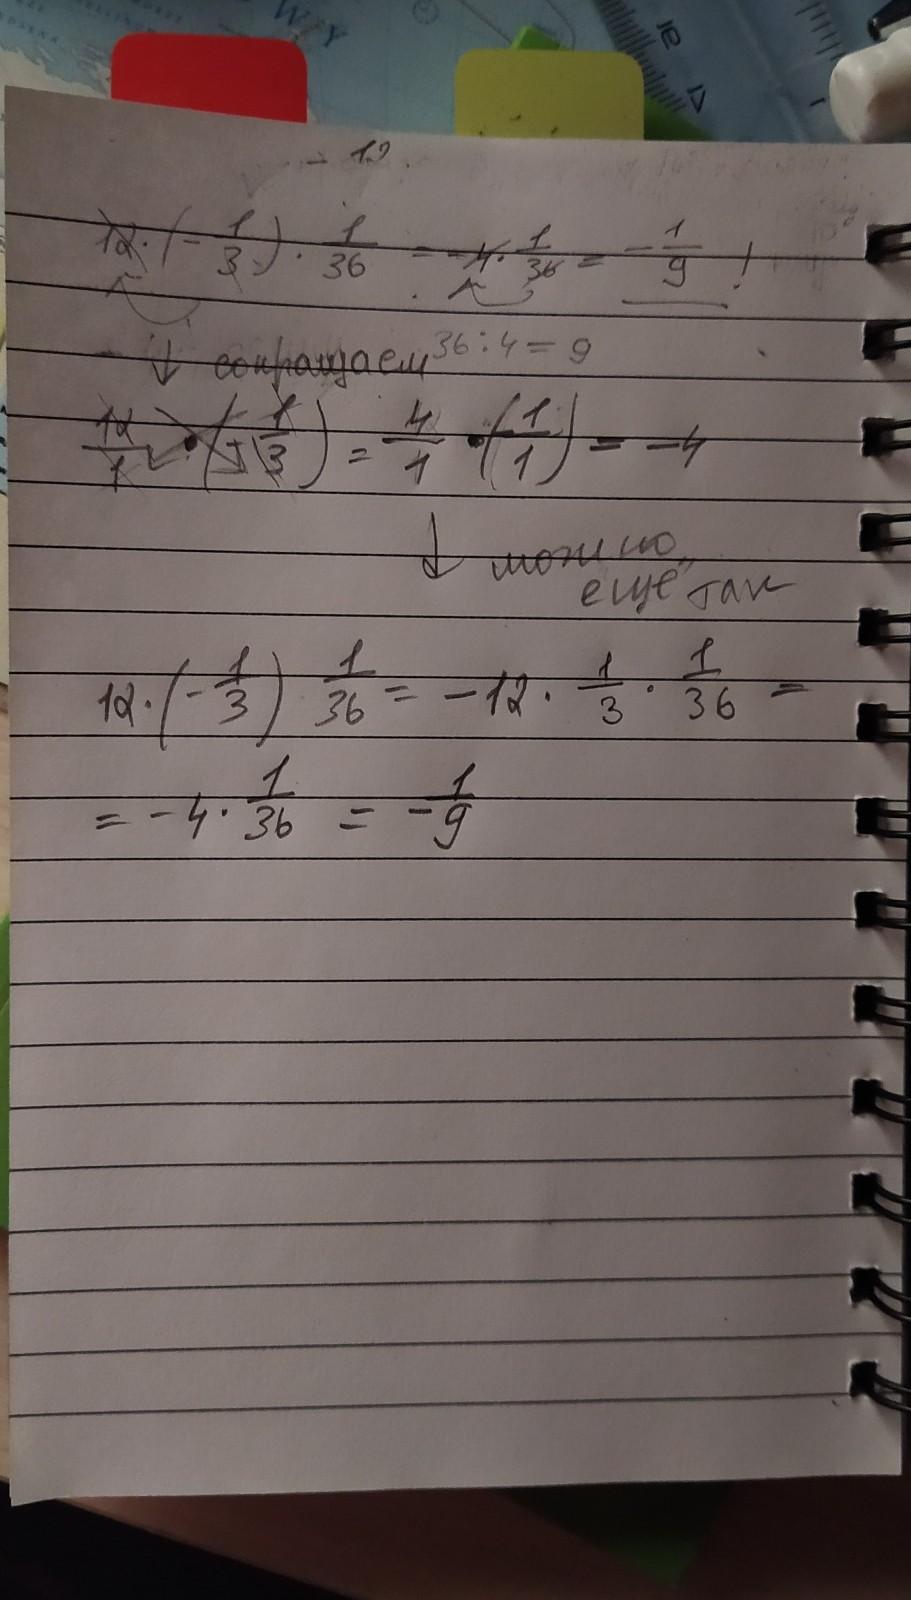 - 12
12 · (- 1/3) · 1/36 = -4 · 1/36 = - 1/9 !
↓ сокращаем 36 : 4 = 9
12/1 · (- 1/3) = 4/1 · (1/1) = -4
↓ можно
ещё так
12 · (- 1/3) 1/36 = -12 · 1/3 · 1/36 =
= -4 · 1/36 = - 1/9